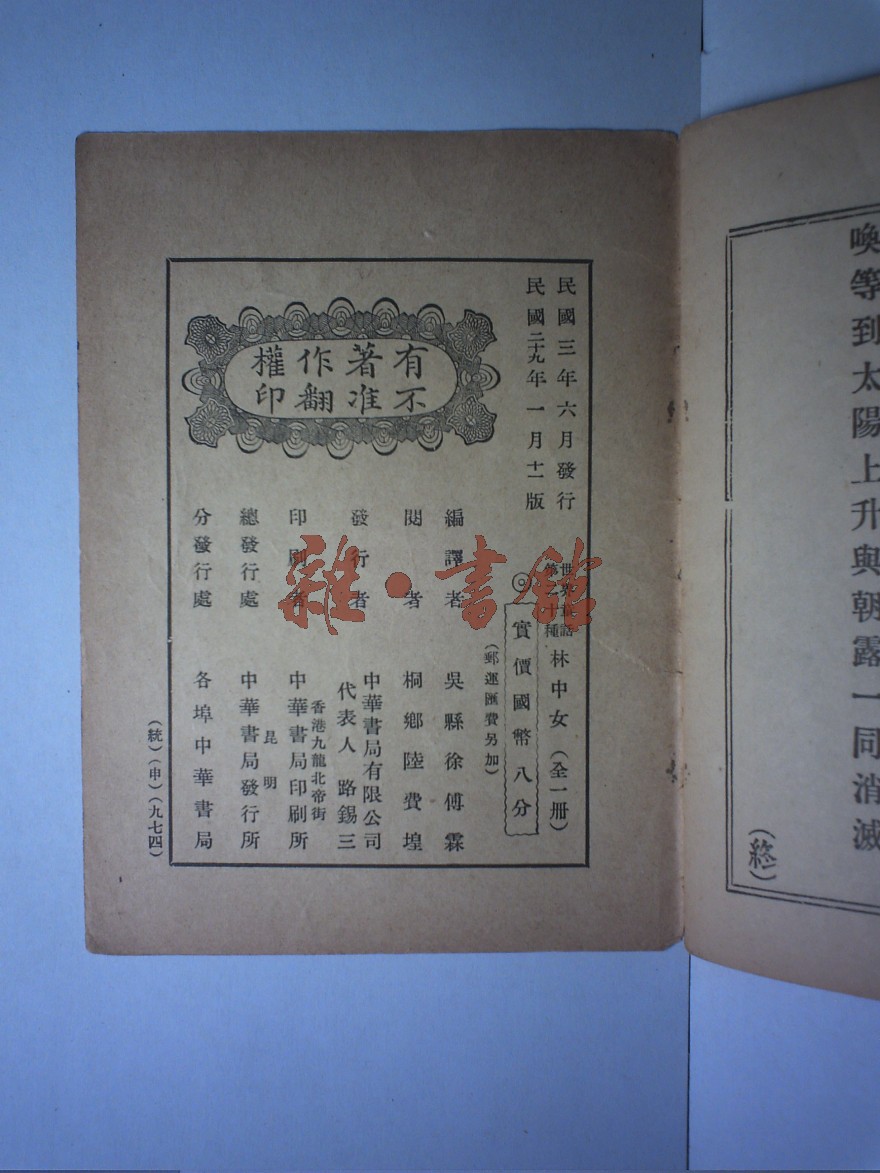 喚等到太陽上升與朝露一同消滅
(終)
民國三年六月發行
民國二十九年一月十二版
世界童話
第二十種
林中女(全一冊)
實價國幣八分
(郵運匯費另加)
有著作權
不准翻印
編譯者 吳縣徐傅霖
閱者 桐鄉陸費堭
發行者 中華書局有限公司
代表人 路錫三
香港九龍北帝街
印刷者 中華書局印刷所
昆明
總發行處 中華書局發行所
分發行處 各埠中華書局
(統)(申)(九七四)
雜·書館